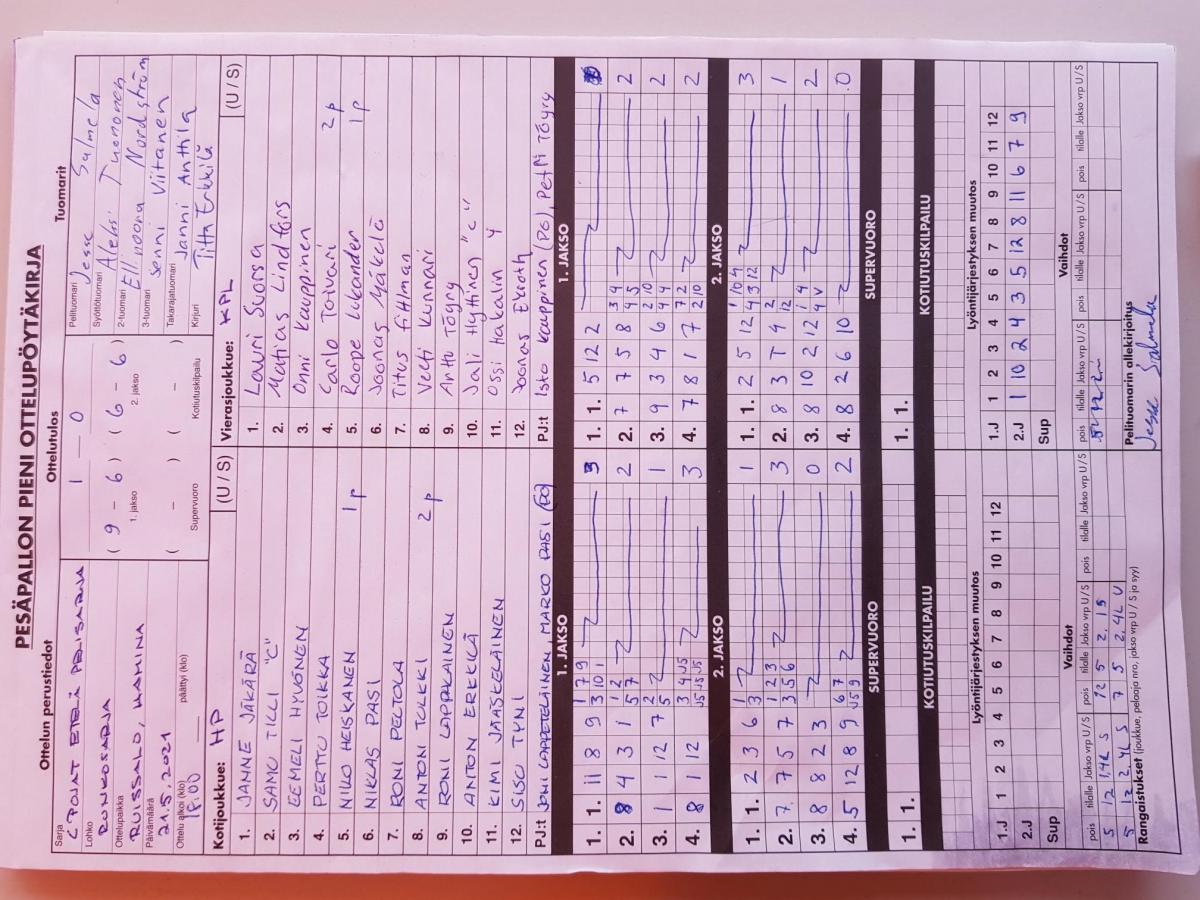 PESÄPALLON PIENI OTTELUPÖYTÄKIRJA
Ottelun perustiedot
Sarja
C POJAT ETELÄ PERUSSARJA
Lohko
RUNKOSARJA
Ottelupaikka
RUISSALO, HAMINA
Päivämäärä
21.5.2021
Ottelu alkoi (klo)
18.00
päättyi (klo)
Ottelutulos
1 — 0
( 9 – 6 ) ( 6 – 6 )
1. jakso 2. jakso
( – ) ( – )
Supervuoro Kotiutuskilpailu
Tuomarit
Pelituomari Jesse Salmela
Syöttötuomari Aleksi Tuononen
2-tuomari Ellinoora Nordström
3-tuomari Sonni Viitanen
Takarajatuomari Janni Anttila
Kirjuri Titta Erkkilä
Kotijoukkue: HP (U / S)
1. JANNE JÄKÄRÄ
2. SAMU TILLI "C"
3. EEMELI HYVÖNEN
4. PERTTU TOIKKA
5. NIILO HEISKANEN 1p
6. NIKLAS PASI
7. RONI PELTOLA
8. ANTONI TULKKI 2p
9. RONI LAPPALAINEN
10. ANTON ERKKILÄ
11. KIMI JÄÄSKELÄINEN
12. SISU TYNI
PJ:t JONI LAPPETELÄINEN, MARKO PASI (PO)
Vierasjoukkue: KPL (U / S)
1. Lauri Suorsa
2. Matias Lindfors
3. Onni Kauppinen
4. Carlo Toivari 2p
5. Roope Lukander 1p
6. Joonas Mäkelä
7. Titus Fihlman
8. Veeti Kunnari
9. Anttu Töyry
10. Jali Hyttinen "C"
11. Ossi Hakalin
12. Joonas Ekroth
PJ:t Isto Kauppinen (PG), Petri Töyry
1. JAKSO
1. 1. 11 8 9 3
2. 8 4 3 1 2
3. 1 1 12 7 1
4. 8 1 12 3
2. JAKSO
1. 1. 2 3 6 1
2. 7 7 5 7 3
3. 8 8 2 3 0
4. 5 12 8 9 2
SUPERVUORO
1. 1.
KOTIUTUSKILPAILU
1. JAKSO
1. 1. 5 12 2
2. 7 7 5 8 2
3. 9 3 4 6 2
4. 7 8 1 7 2
2. JAKSO
1. 1. 2 5 12 3
2. 8 3 T 9 1
3. 8 10 2 12 2
4. 8 2 6 10 0
SUPERVUORO
1. 1.
KOTIUTUSKILPAILU
Lyöntijärjestyksen muutos
1.J 1 2 3 4 5 6 7 8 9 10 11 12
2.J
Sup
Vaihdot
pois tilalle Jakso vrp U / S pois tilalle Jakso vrp U / S pois tilalle Jakso vrp U / S
5 12 1.4L S 12 5 2. 1S
5 12 2.4L S 7 5 2.4L U
Rangaistukset (joukkue, pelaaja nro, jakso vrp U / S ja syy)
Lyöntijärjestyksen muutos
1.J 1 2 3 4 5 6 7 8 9 10 11 12
2.J 1 10 2 4 3 5 12 8 11 6 7 9
Sup
Vaihdot
pois tilalle Jakso vrp U / S pois tilalle Jakso vrp U / S pois tilalle Jakso vrp U / S
Pelituomarin allekirjoitus
Jesse Salmela